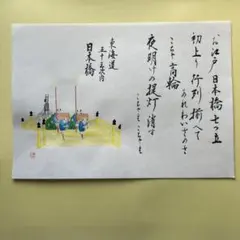 お江戸日本橋七つ立
初上り行列揃へて
あれわいさのさ
こちゃ高輪
夜明けの提灯消す
こちゃえこちゃえ
東海道
五十三次内
日本橋